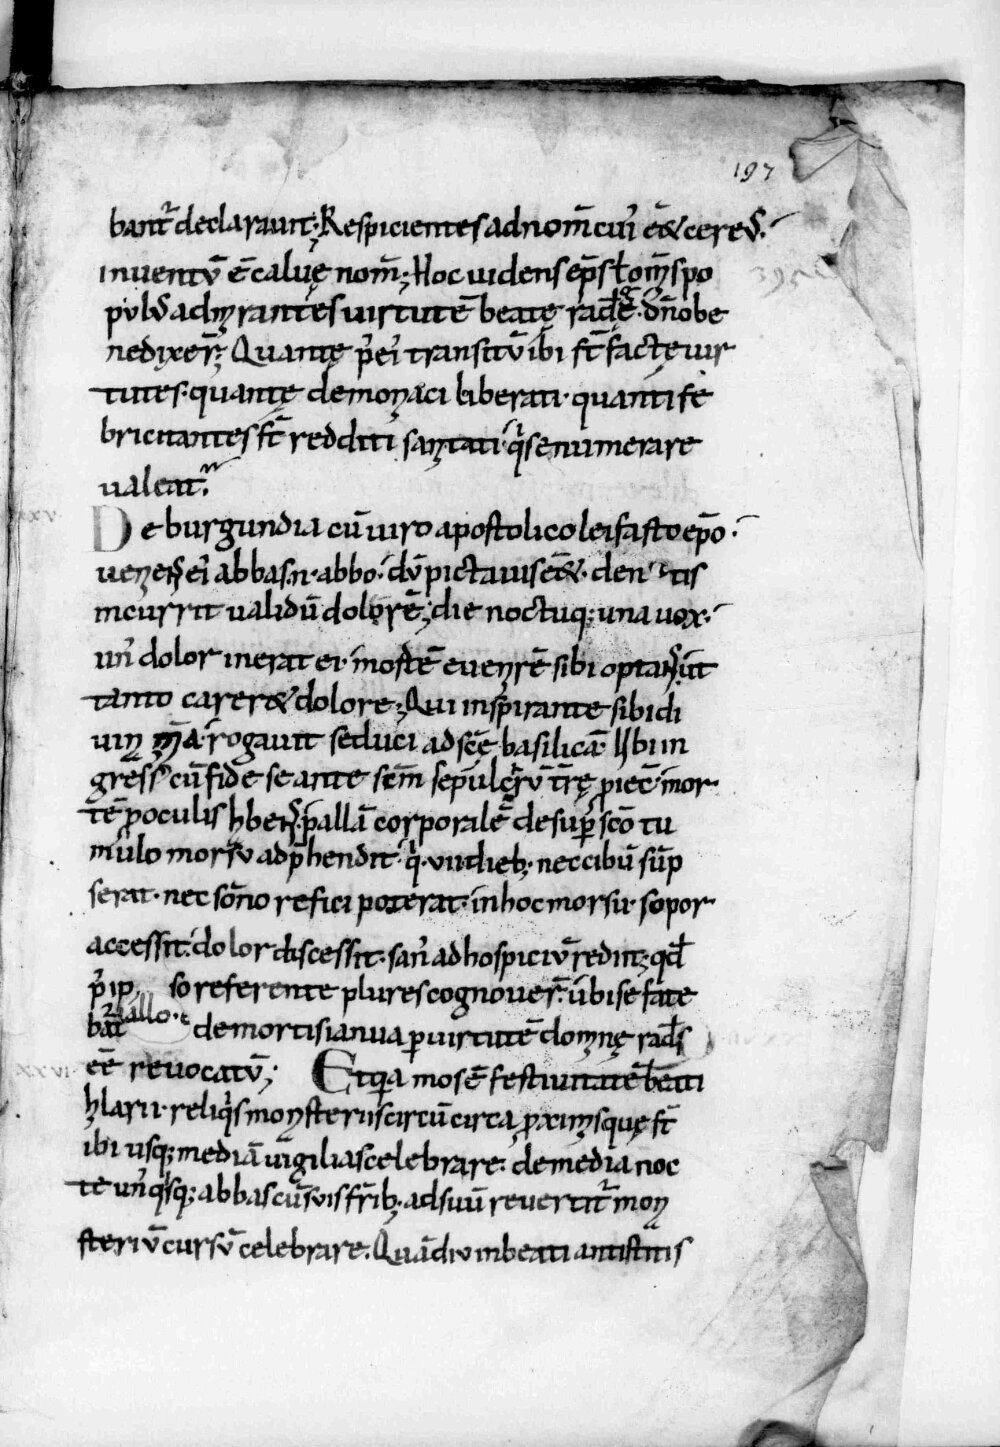 197
bant̄ declaraunt; Respicientes ad nom̄ cui' ēēt cereus.
inuentū ē caluę nom̄; Hoc uidens ep̄s l om̄s po
pulus admirantes uirtutē beatę radeḡ. dn̄o be
nedixer̄; Quantę p' ei' transitū ibi st̄ factę uir
tutes. quantę demoniaci liberati. quanti fe
bricitantes st̄ redditi sanitati. q's enumerare
ualeat.
xxv
De burgundia cū uiro apostolico leifasto ep̄o.
uenens ei' abbas n. abbo. dū pictauis eēt. den tis
incurrit ualidū dolorē; die noctuq; una uox.
un' dolor inerat ei. mostē euenire sibi optans ut
tanto careret dolore; Qui inspirante sibi di
uin ma rogauit se duci ad scē basilicā. Ibi in
gress' cū fide se ante scm̄ sepulcrū tr̄ę piec̄ mor
tē p oculis hbens. pallā corporalē desup scō tu
mulo morsu adp̄hendit. q' vii dieb; nec cibū sūp
serat. nec sōno refici poterat. in hoc morsu. sopor
accessit. dolor discessit. san' ad hospiciū rediit; qd
p' ip so referente plures cognouer̄. ubi se fate
bat' illo.
de mortis ianua p uirtutē domnę rads
eē reuocatū; Et quia mos ē festiuitatē beati
xxvi
hilarii. reliq's monsteriis circū circa. pximis quę st̄
ibi usq; mediā uigilias celebrare. de media noc
te un' q'sq; abbas cū suis fr̄ib; ad suū reuertit̄ mon
steriū cursū celebrare. Quādiu in beati antistitis